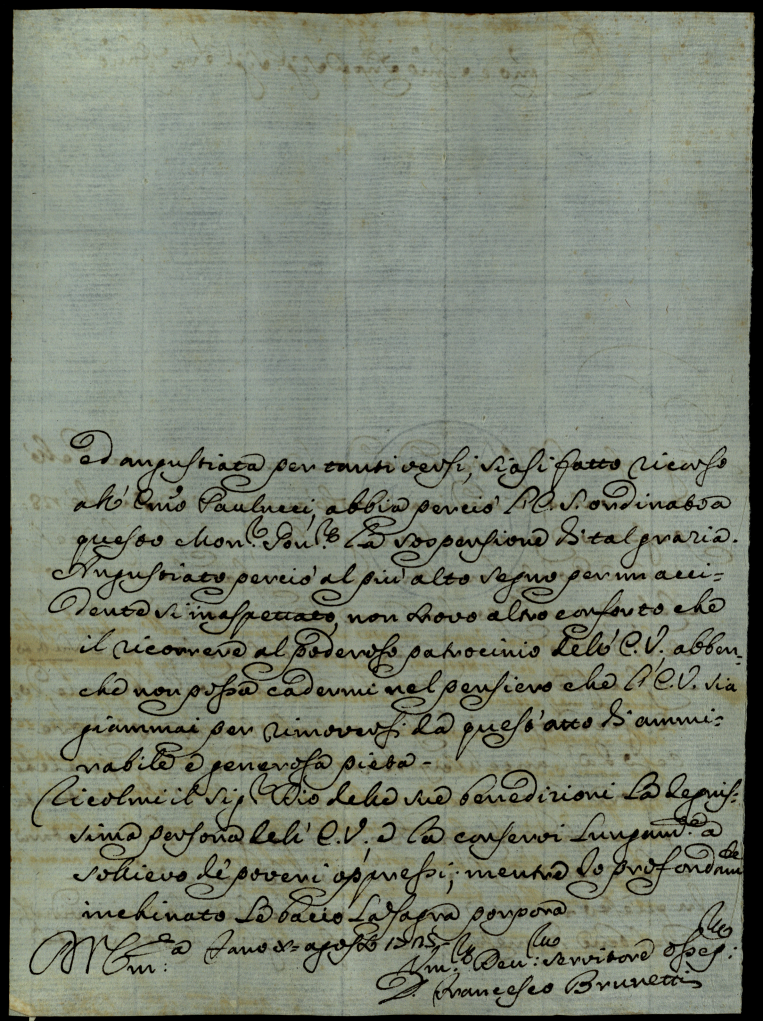 ed angustiata per tanti versi, siasi fatto ricorso
all' Em̃o Paulucci, abbia perciò l'E. S. ordinato a
questo Mon.r la sospensione di tal grazia.
Angustiato perciò al più alto segno per un acci-
dente sì inaspettato, non trovo altro conforto che
il ricorrere al poderoso patrocinio dell' E. V. abben-
che non possa cadermi nel pensiero che l' E. V. sia
giammai per rimoversi da quest' atto di ammi-
rabile e generosa pieta -
Ricolmi il Sig.r Dio delle sue benedizioni la degnis-
sima persona dell' E. V., e la conservi lungam.te a
sollievo de' poveri oppressi; mentre Io profondam.te
inchinato Le bacio La Sagra porpora
Fano agosto
Um.o Dev.mo servitore osseq.mo
D. Francesco Brunetti